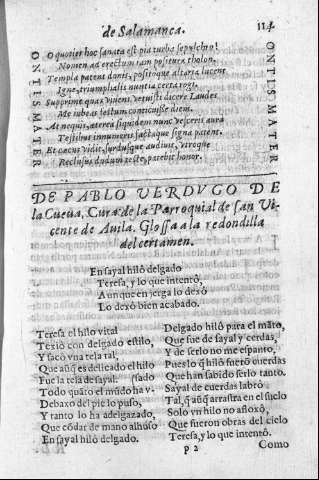 de Salamanca. 114
ONTISMATER
O quoties hoc sanata est pia turba sepulchro!
Nomen ad erectum iam positura tholon.
Templa patent donis, positoque altaria lucent
Igne, triumphalis nuntia certa rogi.
Supreme quas vivens renuisti dicere Laudes
Me iubeas festum conticuisse diem.
At nequis, aterea siquidem nunc vesceris aura
Testibus innumeris sactaque signa patent.
Et cæcus vidit, surdusque audiut, vtroque
Reclusus dudum teste, patebit honor.
ONTISMATER
DE PABLO VERDVGO DE
la Cueua, Cura de la Parroquial de san Vi-
cente de Auila. Glossa a la redondilla
del certamen.
En sayal hilò delgado
Teresa, y lo que intentò,
Aunque en jerga lo dexò
Lo dexò bien acabado.
Teresa el hilo vital
Texiò con delgado estilo,
Y sacò vna tela tal,
Que aũq̃ es delicado el hilo
Fue la tela de sayal. (sado
Todo quãto el mũdo hav-
Debaxo del pie lo puso,
Y tanto lo ha adelgazado,
Que cõ dar de mano alhuso
En sayal hilò delgado.
Delgado hilò para el mãto,
Que fue de sayal y cerdas,
Y de serlo no me espanto,
Pues lo q̃ hilò fuerõ cuerdas
Que han sabido serlo tanto.
Sayal de cuerdas labrò
Tal, q̃ aũq̃ arrastra en el suelo
Solo vn hilo no afloxò,
Que fueron obras del cielo
Teresa, y lo que intentò.
P 2 Como